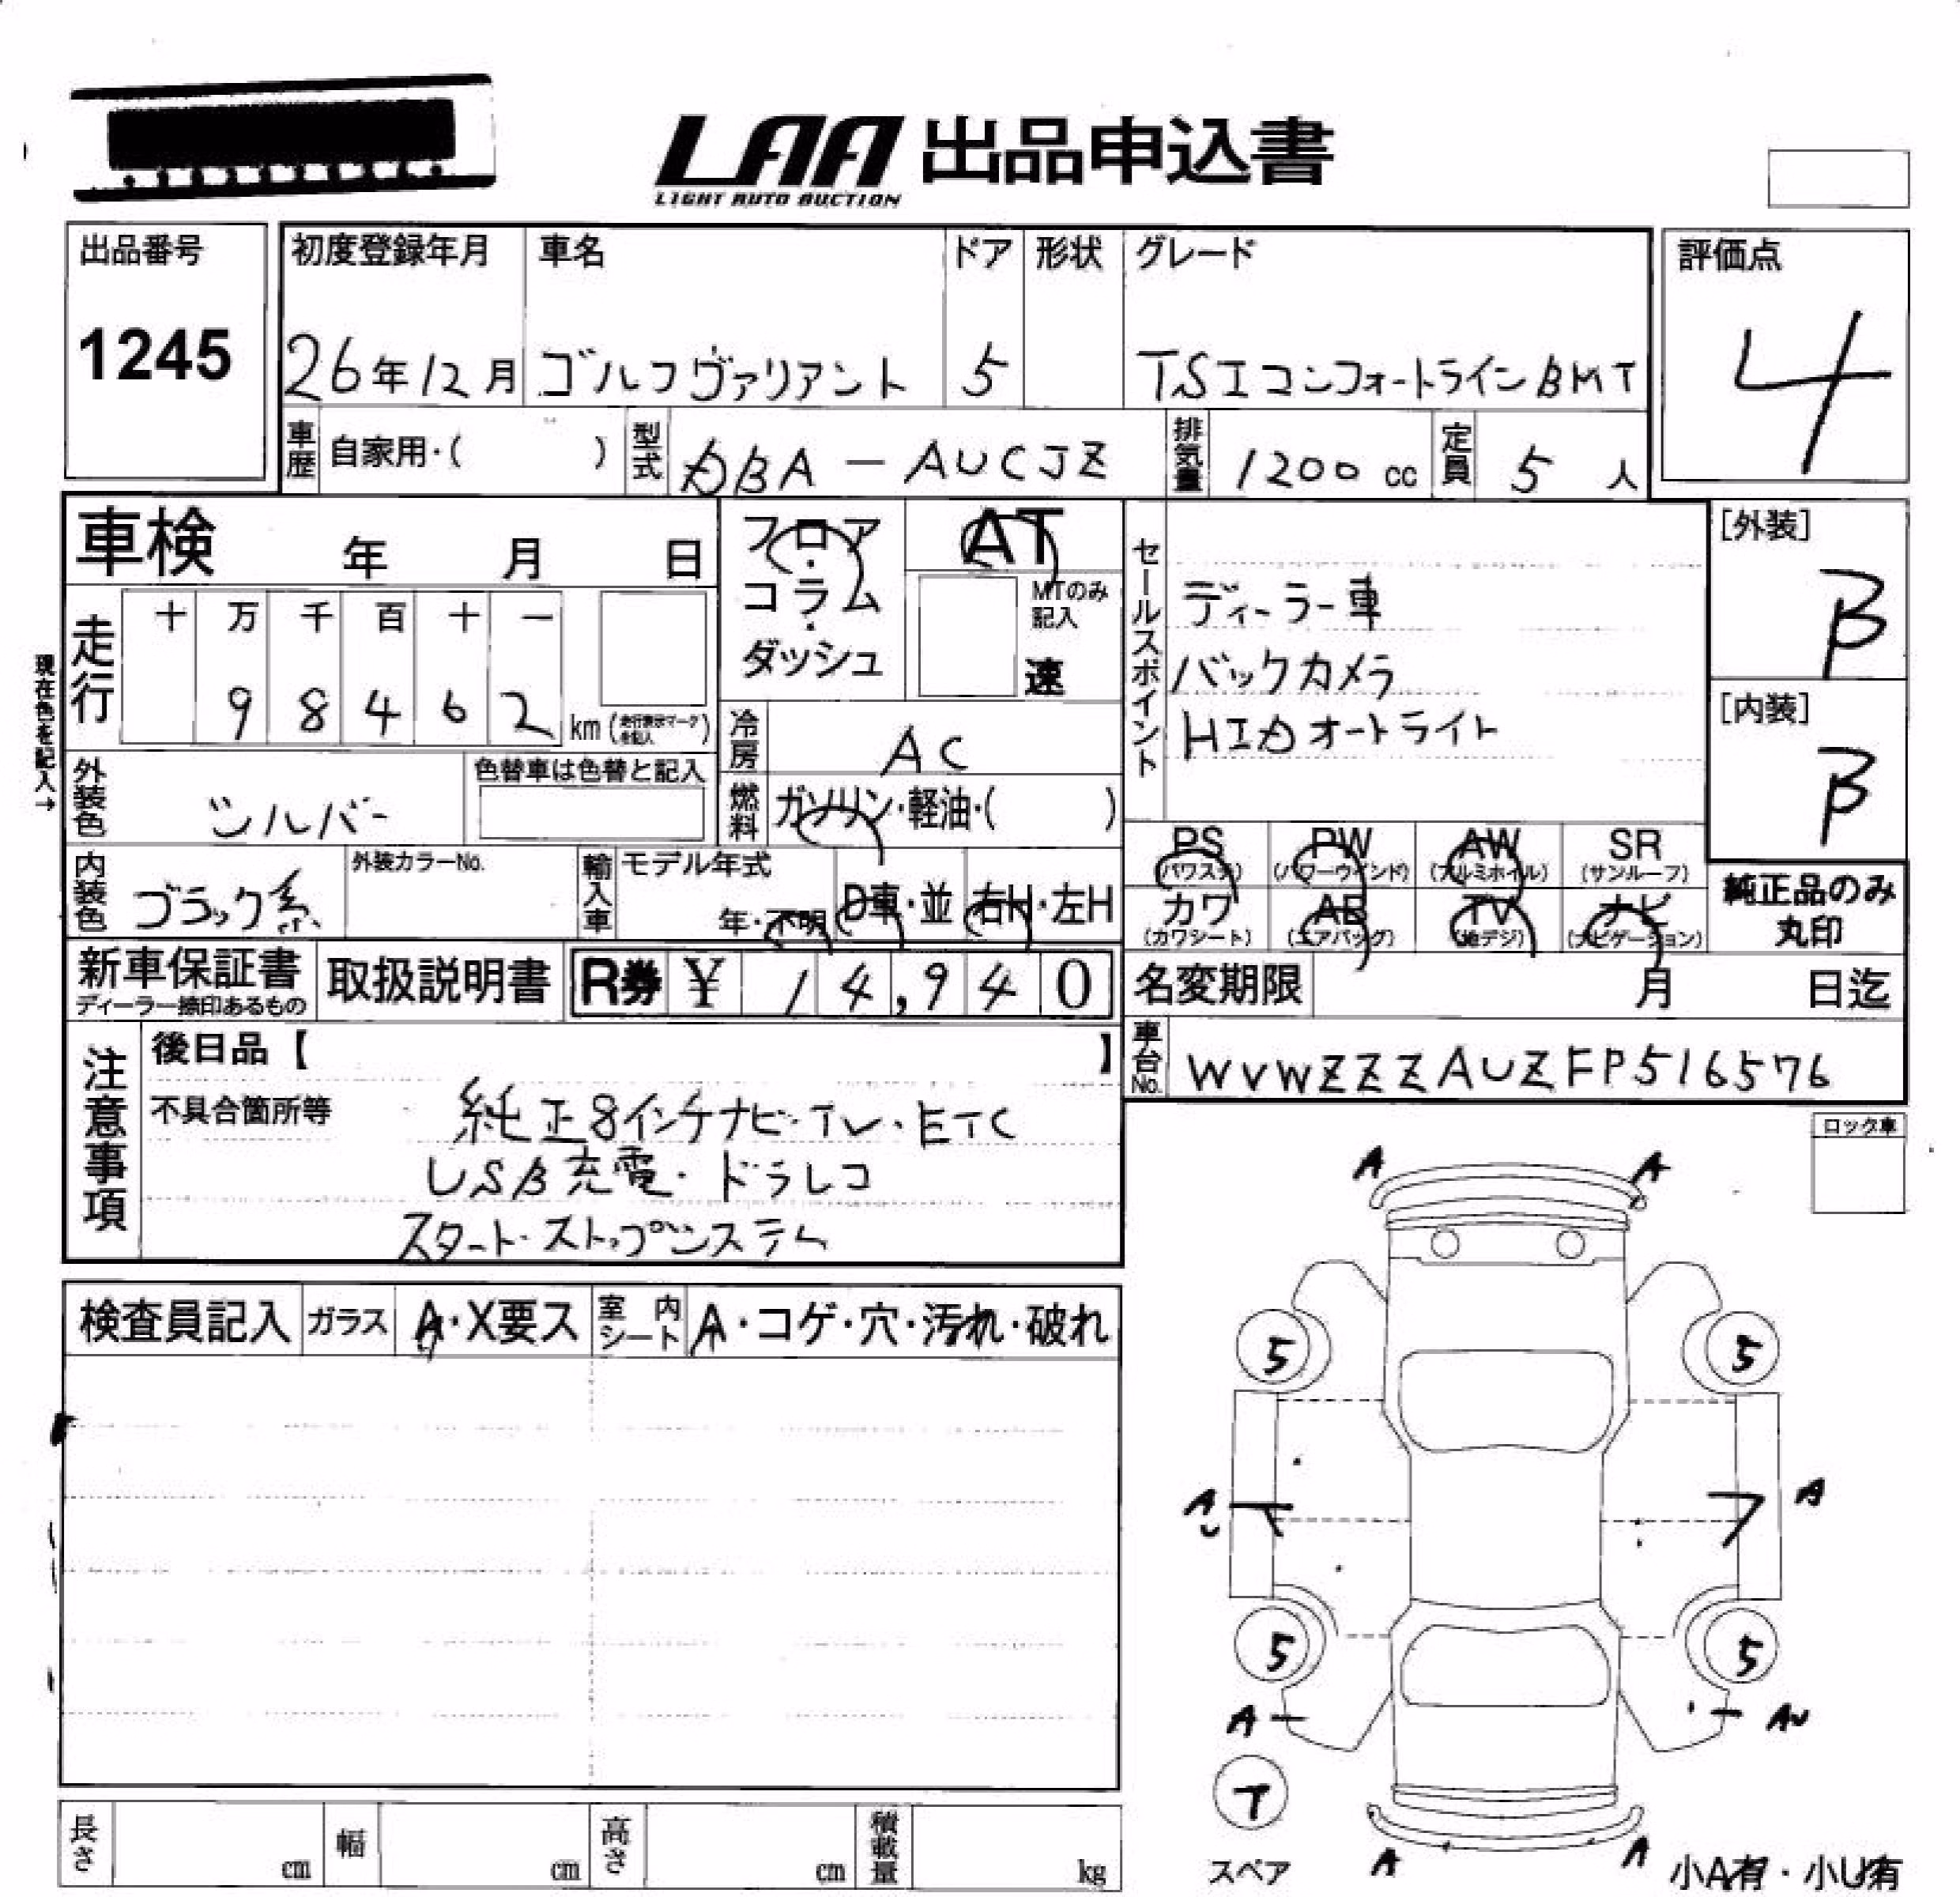 LAA 出品申込書
LIGHT AUTO AUCTION
出品番号 初度登録年月 車名 ドア 形状 グレード 評価点
1245 26年12月 ゴルフヴァリアント 5 TSIコンフォートラインBMT 4
車歴 自家用・( ) 型式 DBA-AUCJZ 排気量 1200 cc 定員 5 人
車検 年 月 日
フロア・コラム・ダッシュ
AT
MTのみ記入
速
セールスポイント
ディーラー車
バックカメラ
HIDオートライト
[外装]
B
[内装]
B
現在色を記入→
走行 十 万 千 百 十 一
9 8 4 6 2 km (走行表示マークを記入)
冷房 AC
外装色 シルバー 色替車は色替と記入
燃料 ガソリン・軽油・( )
PS (パワステ) PW (パワーウインド) AW (アルミホイル) SR (サンルーフ)
カワ (カワシート) AB (エアバッグ) TV (地デジ) ナビ (ナビゲーション)
純正品のみ
丸印
内装色 ブラック系 外装カラーNo. 輸入車 モデル年式 年・不明 D車・並 右H・左H
新車保証書 ディーラー捺印あるもの 取扱説明書 R券 ¥ 14,940
名変期限 月 日迄
車台No. WVWZZZAUZFP516576
注意事項
後日品【 】
不具合箇所等 純正8インチナビ・TV・ETC
USB充電・ドラレコ
スタート・ストップシステム
ロック車
検査員記入 ガラス A・X要ス 室内シート A・コゲ・穴・汚れ・破れ
A A
5 5
A A
U
5 5
A AU
T
スペア
A A
小A有・小U有
長さ cm 幅 cm 高さ cm 積載量 kg